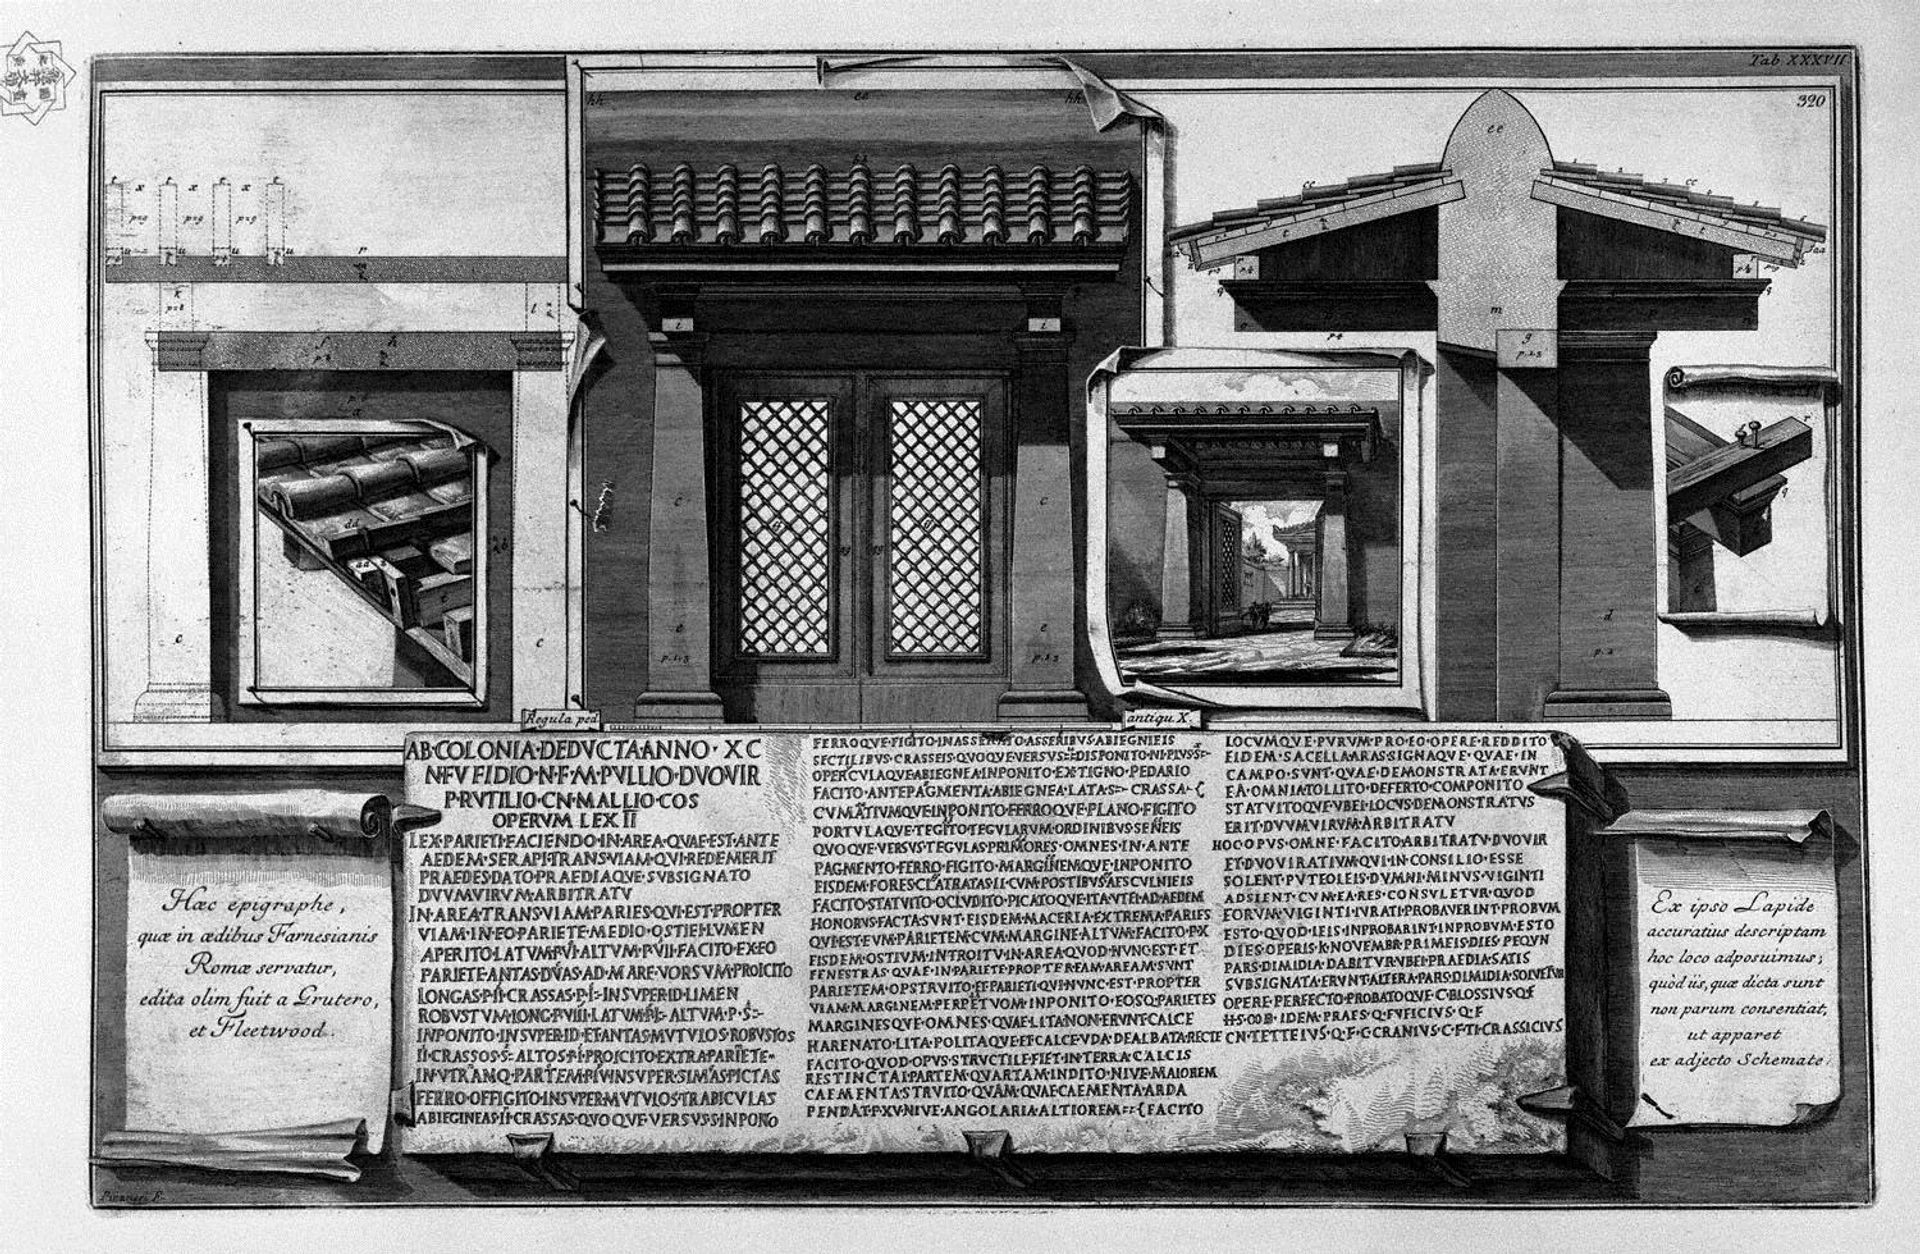 Tab. XXXVII
320
Regula ped
antiqu. X.
AB·COLONIA·DEDVCTA·ANNO·XC
N·FVFIDIO·N·F·M·PVLLIO·DVOVIR
P·RVTILIO·CN·MALLIO·COS
OPERVM LEX II
LEX·PARIETI·FACIENDO·IN·AREA·QVAE·EST·ANTE
AEDEM·SERAPI·TRANS·VIAM·QVI·REDEMERIT
PRAEDES·DATO·PRAEDIAQVE·SVBSIGNATO
DVVMVIRVM·ARBITRATV
IN·AREA·TRANS·VIAM·PARIES·QVI·EST·PROPTER
VIAM·IN·EO·PARIETE·MEDIO·OSTIEI·LVMEN
APERITO·LATVM·P·VI·ALTVM·P·VII·FACITO·EX·EO
PARIETE·ANTAS·DVAS·AD·MARE·VORSVM·PROICITO
LONGAS·P·II·CRASSAS·INSVPER·ID·LIMEN
ROBVSTVM·LONG·P·VIII·LATVM·ALTVM·P·
INPONITO·INSVPER·ID·ET·ANTAS·MVTVLOS·ROBVSTOS
II·CRASSOS·ALTOS·P·I·PROICITO·EXTRA·PARIETE·
IN·VTRAMQ·PARTEM·INSVPER·SIMAS·PICTAS
FERRO·OFFIGITO·INSVPER·MVTVLOS·TRABICVLAS
ABIEGINEAS·II·CRASSAS·QVOQVE·VERSVS·INPONO
FERROQVE·FIGITO·INASSERATO·ASSERIBVS·ABIEGNIEIS
SECTILIBVS·CRASSEIS·QVOQVE·VERSVS·DISPONITO·NI·PLVS·
OPERCVLAQVE·ABIEGNEA·INPONITO·EX·TIGNO·PEDARIO
FACITO·ANTEPAGMENTA·ABIEGNEA·LATA·CRASSA·
CVMATIVMQVE·INPONITO·FERROQVE·PLANO·FIGITO
PORTVLAQVE·TEGITO·TEGVLARVM·ORDINIBVS·SENEIS
QVOQVE·VERSVS·TEGVLAS·PRIMORES·OMNES·IN·ANTE
PAGMENTO·FERRO·FIGITO·MARGINEMQVE·INPONITO
EISDEM·FORES·CLATRATAS·II·CVM·POSTIBVS·AESCVLNIEIS
FACITO·STATVITO·OCLVDITO·PICATOQVE·ITA·VTEI·AD·AEDEM
HONORVS·FACTA·SVNT·EISDEM·MACERIA·EXTREMA·PARIES
QVI·EST·EVM·PARIETEM·CVM·MARGINE·ALTVM·FACITO·P·X
EISDEM·OSTIVM·INTROITV·IN·AREA·QVOD·NVNC·EST·ET·
FENESTRAS·QVAE·IN·PARIETE·PROPTER·EAM·AREAM·SVNT
PARIETEM·OPSTRVITO·ET·PARIETI·QVI·NVNC·EST·PROPTER
VIAM·MARGINEM·PERPETVOM·INPONITO·EOSQ·PARIETES
MARGINESQVE·OMNES·QVAE·LITA·NON·ERVNT·CALCE
HARENATO·LITA·POLITAQVE·ET·CALCE·VDA·DEALBATA·RECTE
FACITO·QVOD·OPVS·STRVCTILE·FIET·IN·TERRA·CALCIS
RESTINCTAI·PARTEM·QVARTAM·INDITO·NIVE·MAIOREM
CAEMENTA·STRVITO·QVAM·QVAE·CAEMENTA·ARDA
PENDAT·P·XV·NIVE·ANGOLARIA·ALTIOREM·FACITO
LOCVMQVE·PVRVM·PRO·EO·OPERE·REDDITO
EIDEM·SACELLA·ARAS·SIGNAQVE·QVAE·IN
CAMPO·SVNT·QVAE·DEMONSTRATA·ERVNT
EA·OMNIA·TOLLITO·DEFERTO·COMPONITO
STATVITOQVE·VBEI·LOCVS·DEMONSTRATVS
ERIT·DVVMVIRVM·ARBITRATV
HOC·OPVS·OMNE·FACITO·ARBITRATV·DVOVIR
ET·DVOVIRATIVM·QVI·IN·CONSILIO·ESSE
SOLENT·PVTEOLEIS·DVM·NI·MINVS·VIGINTI
ADSIENT·CVM·EA·RES·CONSVLETVR·QVOD
EORVM·VIGINTI·IVRATI·PROBAVERINT·PROBVM
ESTO·QVOD·IEIS·INPROBARINT·INPROBVM·ESTO
DIES·OPERIS·K·NOVEMBR·PRIMEIS·DIES·PEQVN
PARS·DIMIDIA·DABITVR·VBEI·PRAEDIA·SATIS
SVBSIGNATA·ERVNT·ALTERA·PARS·DIMIDIA·SOLVETVR
OPERE·PERFECTO·PROBATOQVE·C·BLOSSIVS·Q·F
IDEM·PRAES·Q·FVFICIVS·Q·F
CN·TETTEIVS·Q·F·C·GRANIVS·C·F·TI·CRASSICIVS
Hæc epigraphe,
quæ in ædibus Farnesianis
Romæ servatur,
edita olim fuit a Grutero,
et Fleetwood.
Ex ipso Lapide
accuratius descriptam
hoc loco adposuimus;
quòd iis, quæ dicta sunt
non parum consentiat,
ut apparet
ex adjecto Schemate.
Piranesi F.